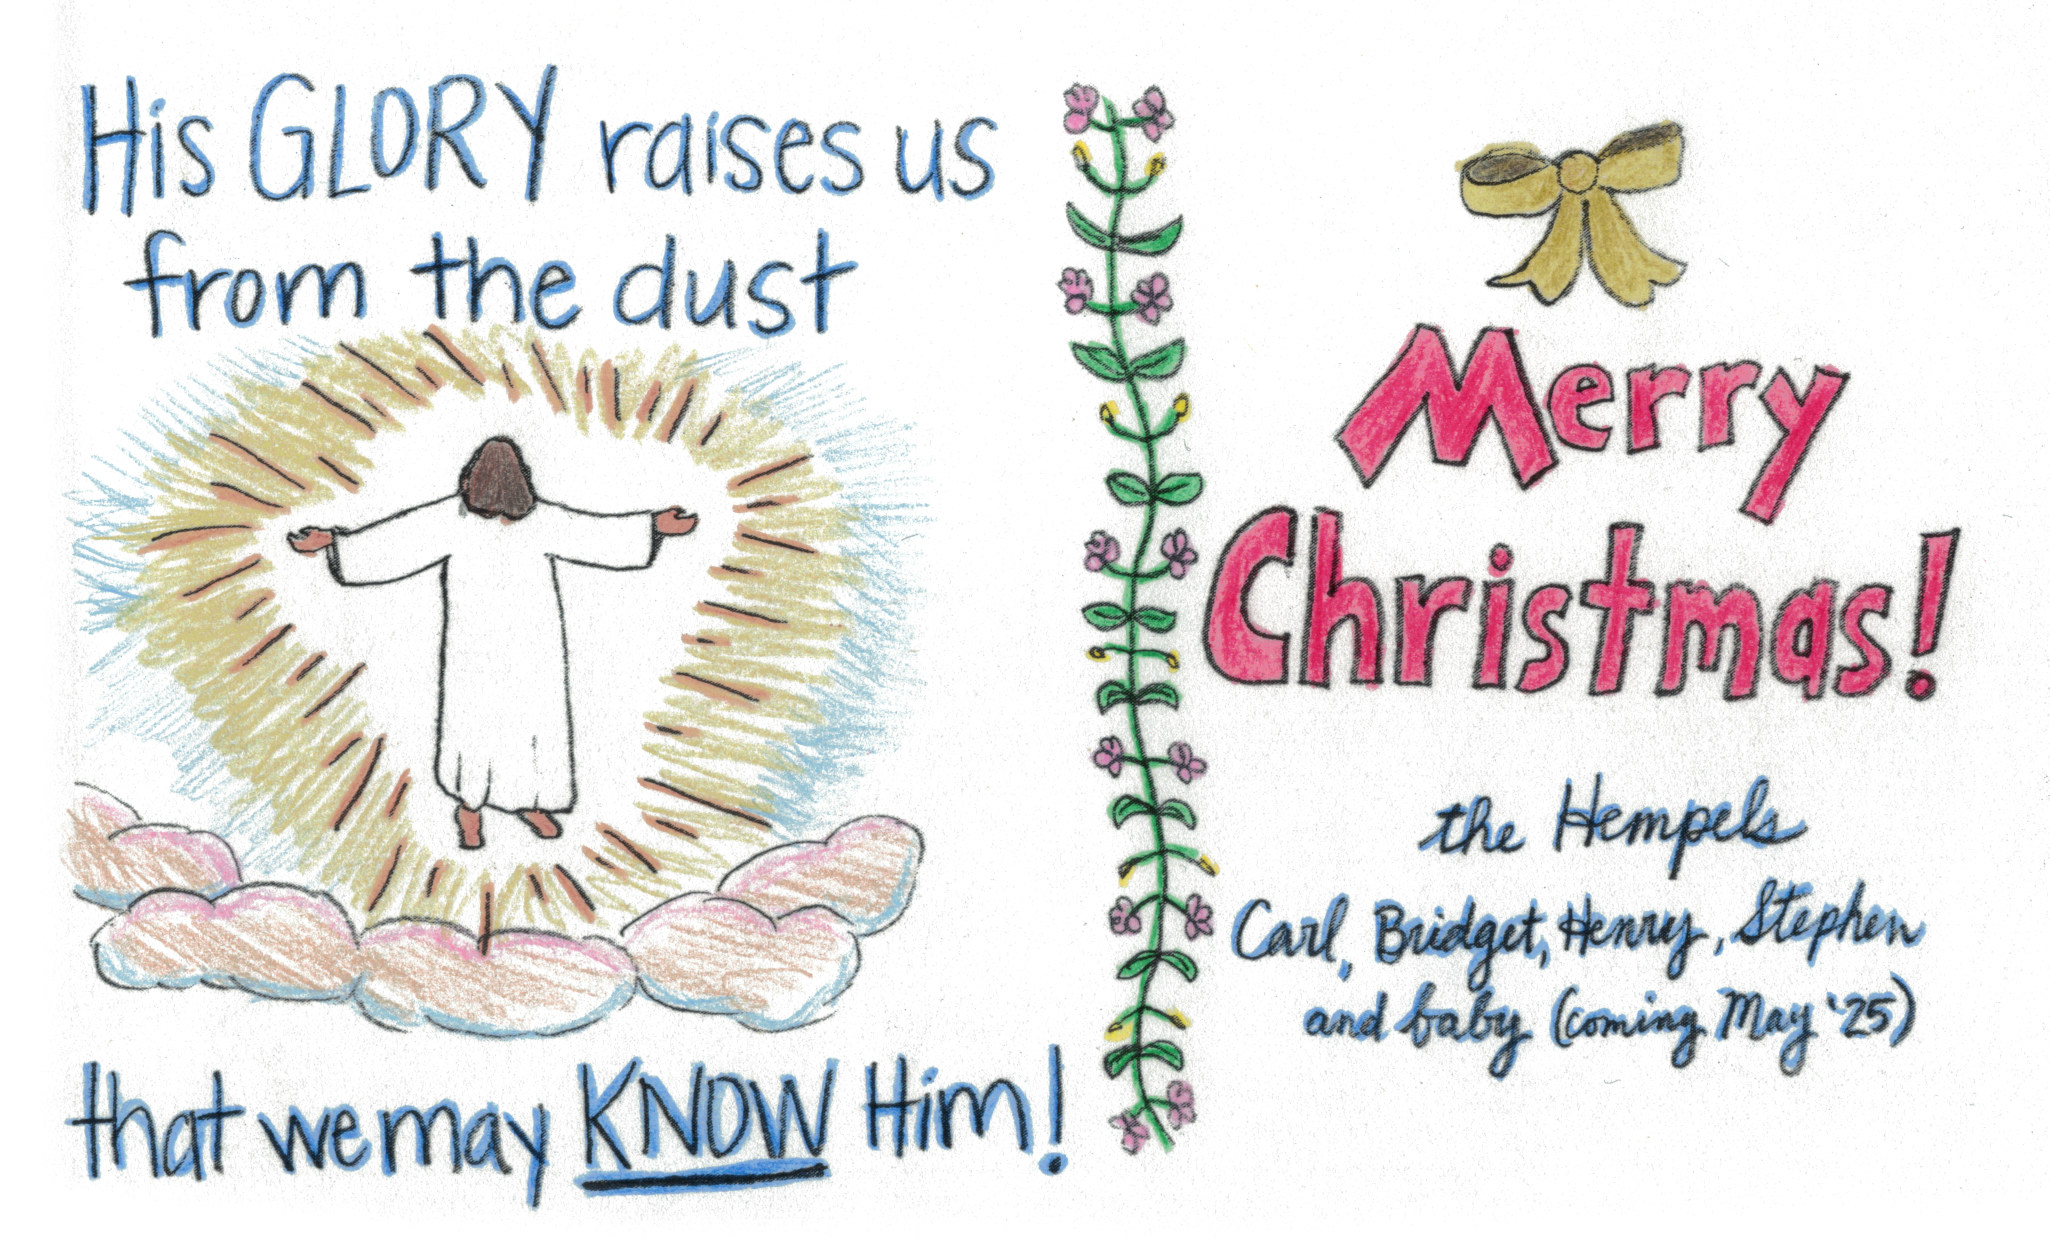 His GLORY raises us
from the dust
that we may KNOW Him!
Merry
Christmas!
the Hempels
Carl, Bridget, Henry, Stephen
and baby (coming May '25)